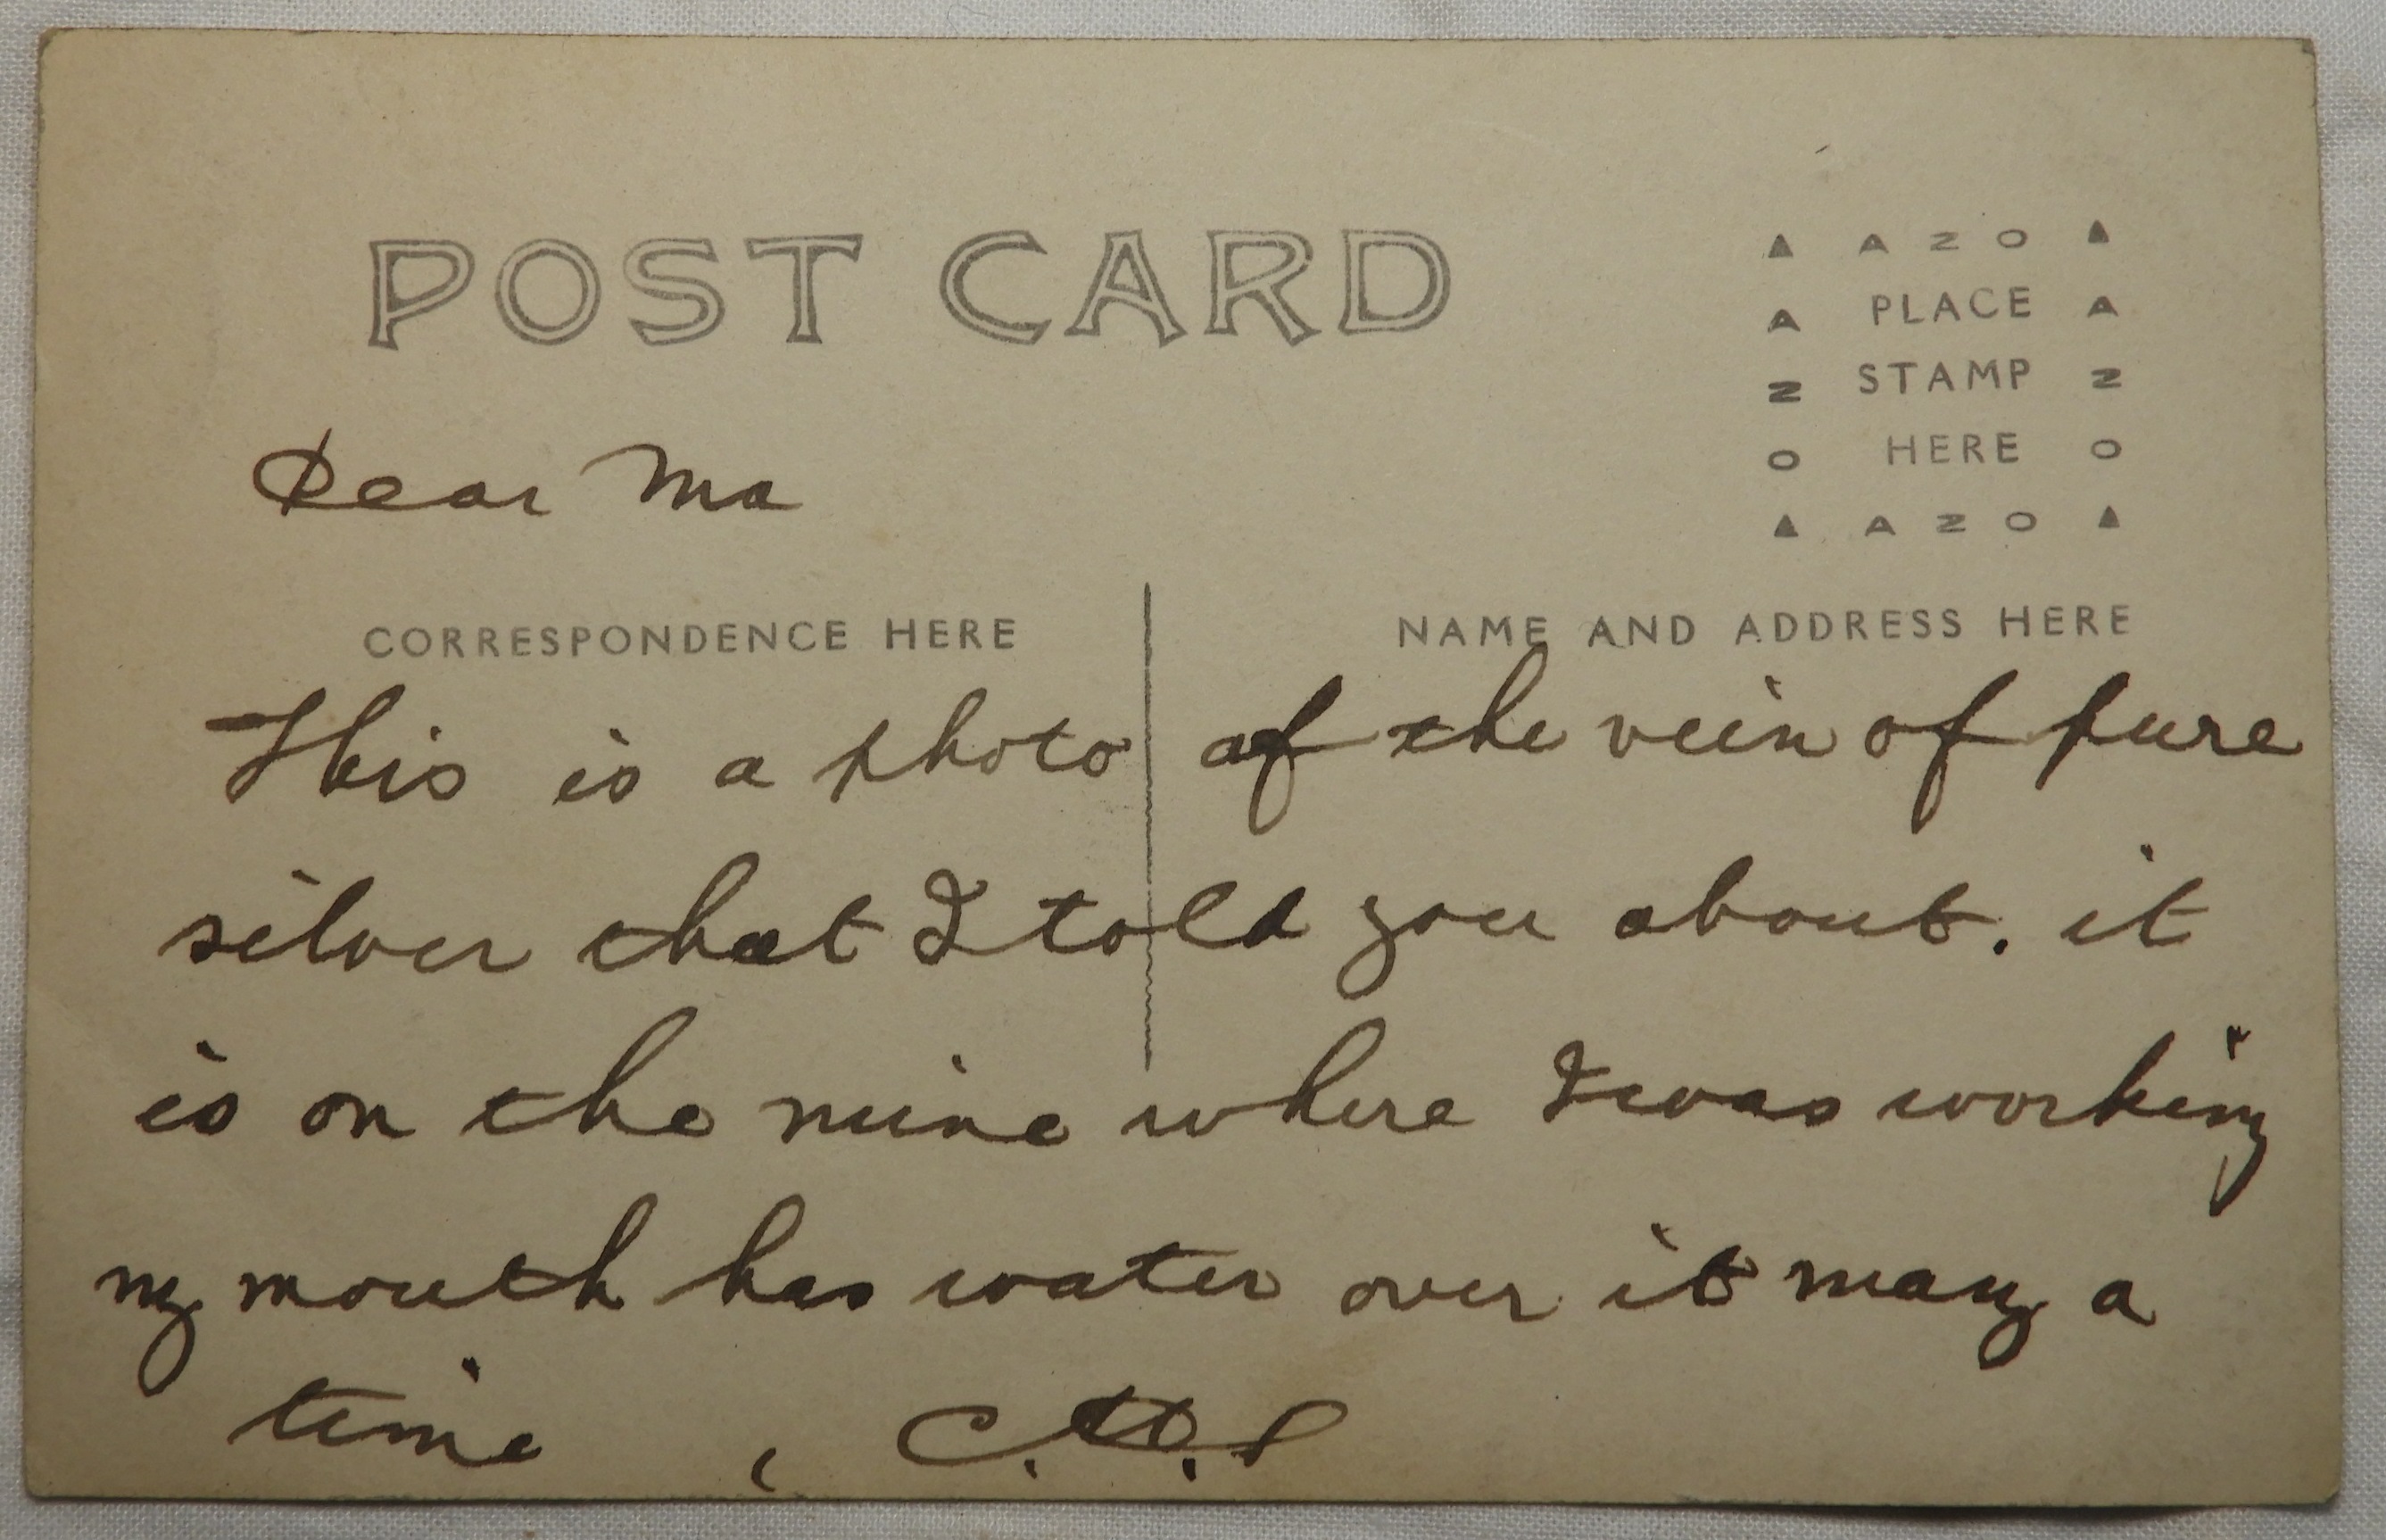 POST CARD
▲ A Z O ▲
A PLACE A
Z STAMP Z
O HERE O
▲ A Z O ▲
Dear Ma
CORRESPONDENCE HERE
NAME AND ADDRESS HERE
This is a photo of the vein of pure
silver that I told you about. it
is on the mine where I was working
my mouth has water over it many a
time